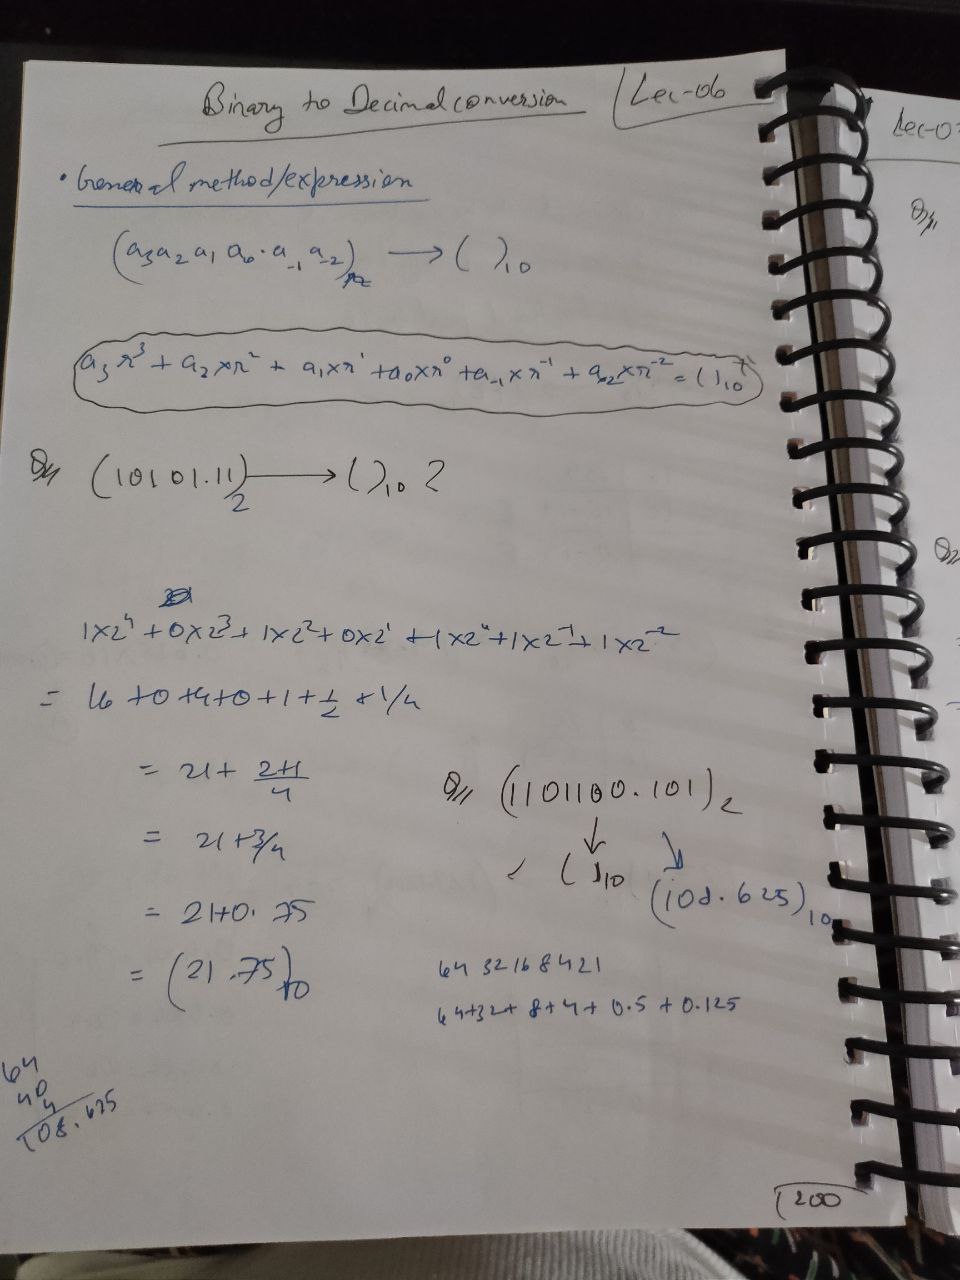 Binary to Decimal conversion Lec-06
Lec-0
• General method/expression
(a₃a₂a₁a₀.a₋₁a₋₂)r → ( )₁₀
a₃r³ + a₂×r² + a₁×r¹ + a₀×r⁰ + a₋₁×r⁻¹ + a₋₂×r⁻² = ( )₁₀
Q// (10101.11)₂ → ( )₁₀ ?
1×2⁴ + 0×2³ + 1×2² + 0×2¹ + 1×2⁰ + 1×2⁻¹ + 1×2⁻²
= 16 + 0 + 4 + 0 + 1 + 1/2 + 1/4
= 21 + (2+1)/4
= 21 + 3/4
= 21+0.75
= (21.75)₁₀
Q// (1101100.101)₂
( )₁₀ (108.625)₁₀
64 32 16 8 4 2 1
64+32+8+4+0.5+0.125
64
40
4
108.625
200